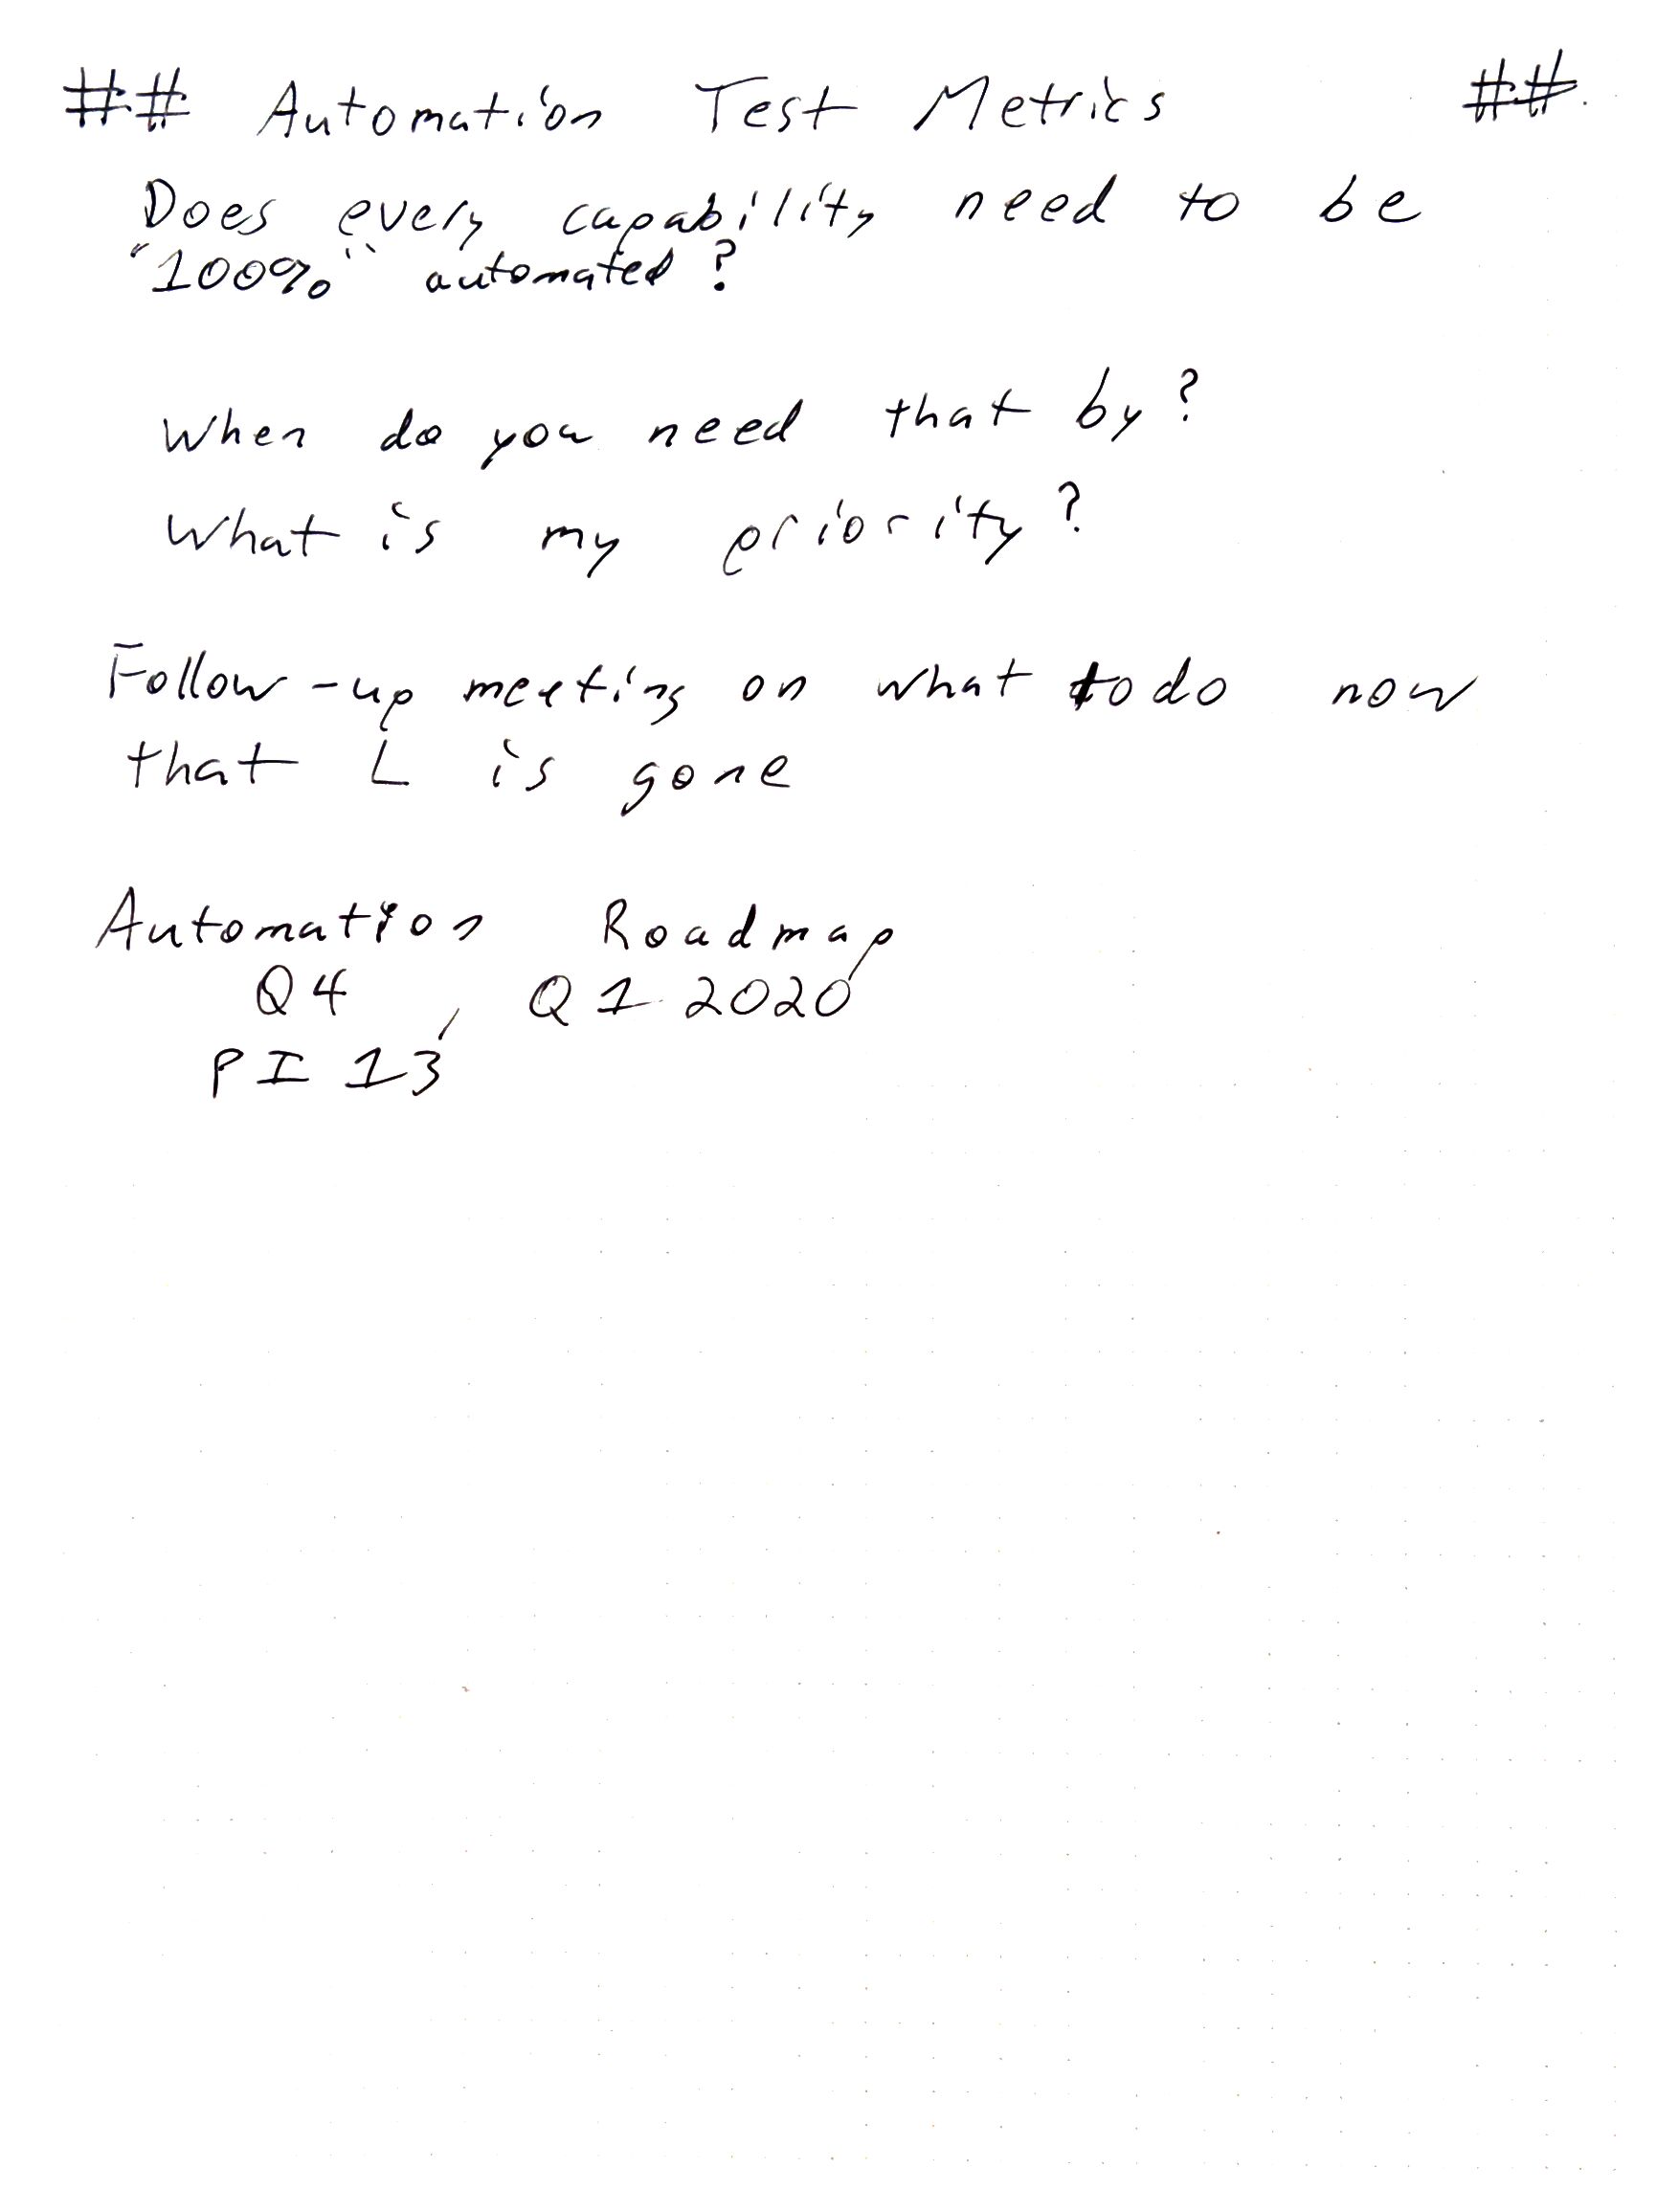 ## Automation Test Metrics ##
Does every capability need to be
"100%" automated?
When do you need that by?
What is my priority?
Follow-up meeting on what to do now
that L is gone
Automation Roadmap
Q4, Q1 2020
PI 13